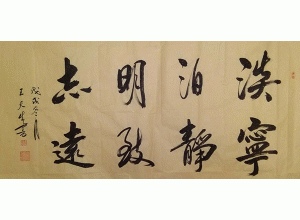 淡泊明志
寧靜致遠
戊戌冬月
王天書